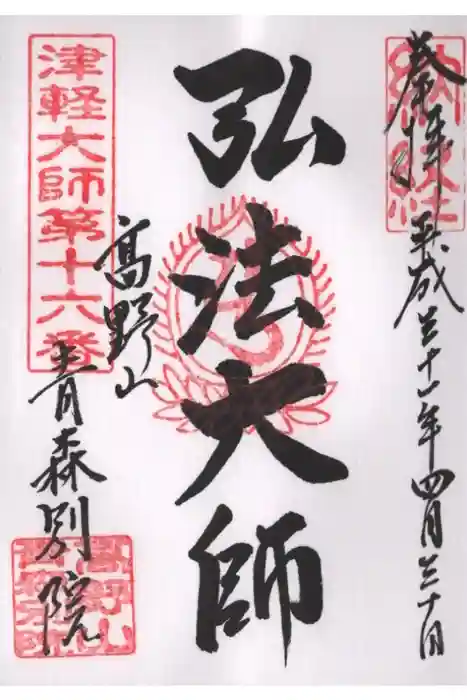 奉拝 平成三十一年四月三十日
納経
弘法大師
津軽大師第十六番
高野山
青森別院